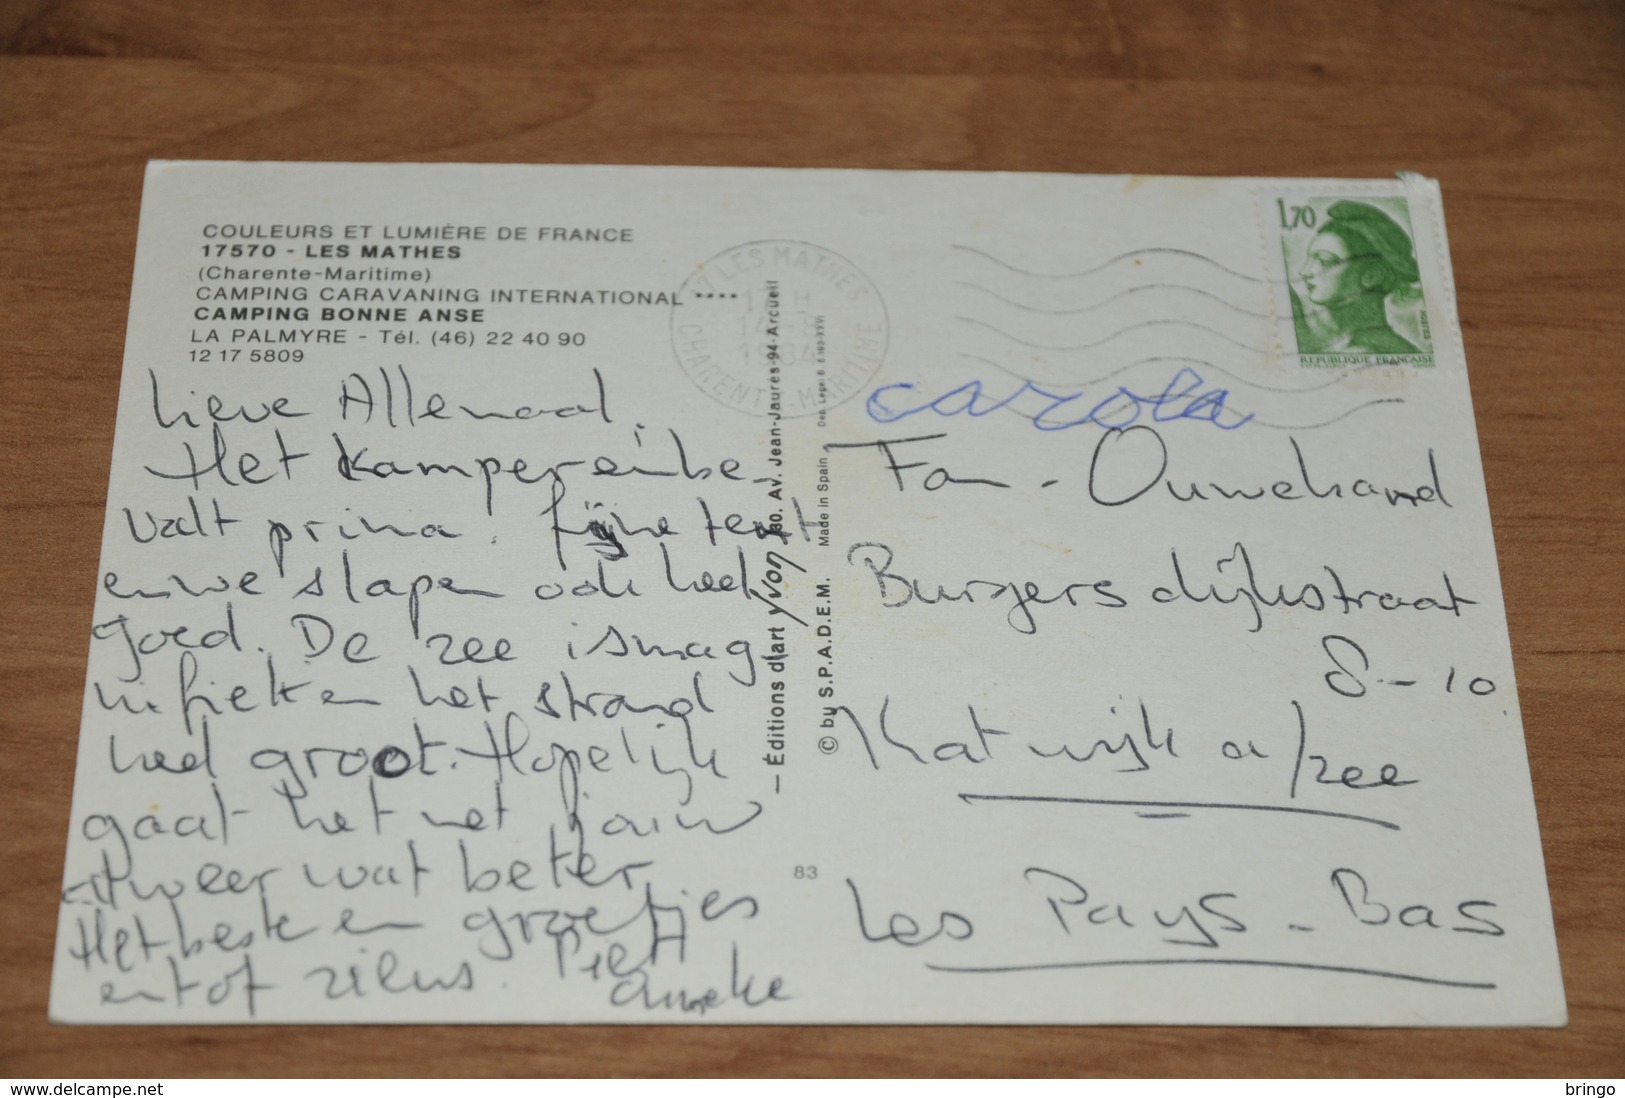 COULEURS ET LUMIÈRE DE FRANCE
17570 - LES MATHES
(Charente-Maritime)
CAMPING CARAVANING INTERNATIONAL ****
CAMPING BONNE ANSE
LA PALMYRE - Tél. (46) 22 40 90
12 17 5809
Lieve Allemaal,
Het Kampeeren be-
valt prima. fijne tent
en we slapen ook heel
goed. De zee is mag-
nifiek en het strand
heel groot. Hopelijk
gaat het met jouw
weer wat beter
Het beste en groetjes
en tot ziens. Piet
Anneke
17 LES MATHES
14-8
1984
CHARENTE-MARITIME
— Éditions d'art yvon 30. Av. Jean-Jaurès-94-Arcueil
© by S.P.A.D.E.M. Made in Spain
83
1,70
REPUBLIQUE FRANÇAISE
carola
Fam - Ouwehand
Burgersdijkstraat
8-10
Katwijk a/zee
Les Pays-Bas
www.delcampe.net
bringo